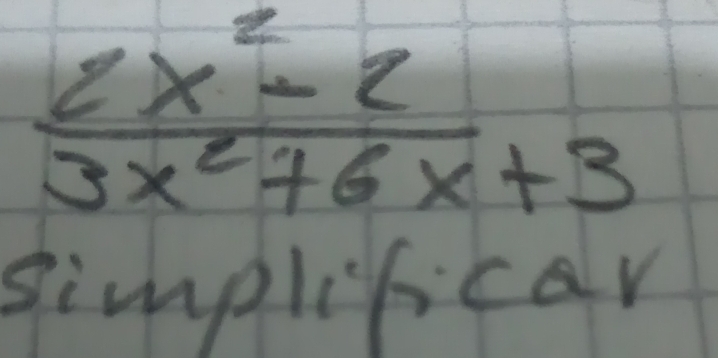 2x² - 2
3x² + 6x + 3
simplificar